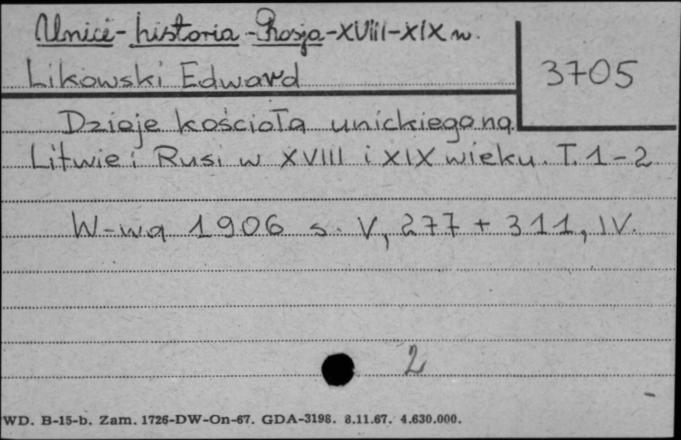 Unici - historia - Rosja - XVIII-XIX w.
Likowski Edward
3705
Dzieje kościoła unickiego na
Litwie i Rusi w XVIII i XIX wieku. T. 1-2
W-wa 1906 s. V, 277 + 311, IV.
2
WD. B-15-b. Zam. 1726-DW-On-67. GDA-3198. 8.11.67. 4.630.000.